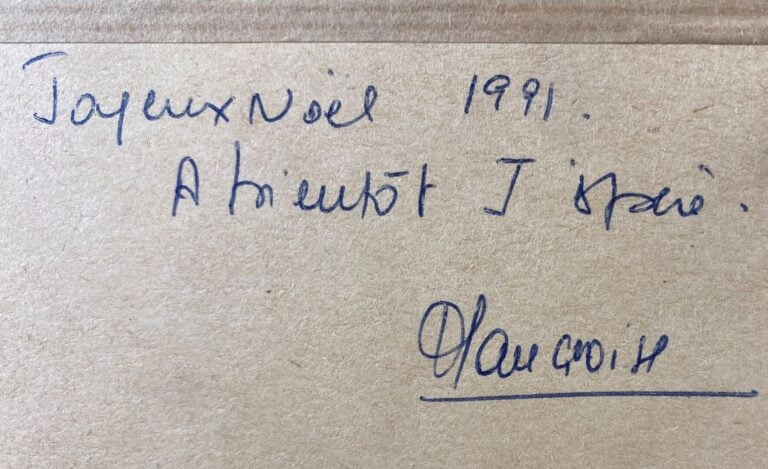 Joyeux Noël 1991.
A bientôt J'espère.
Françoise